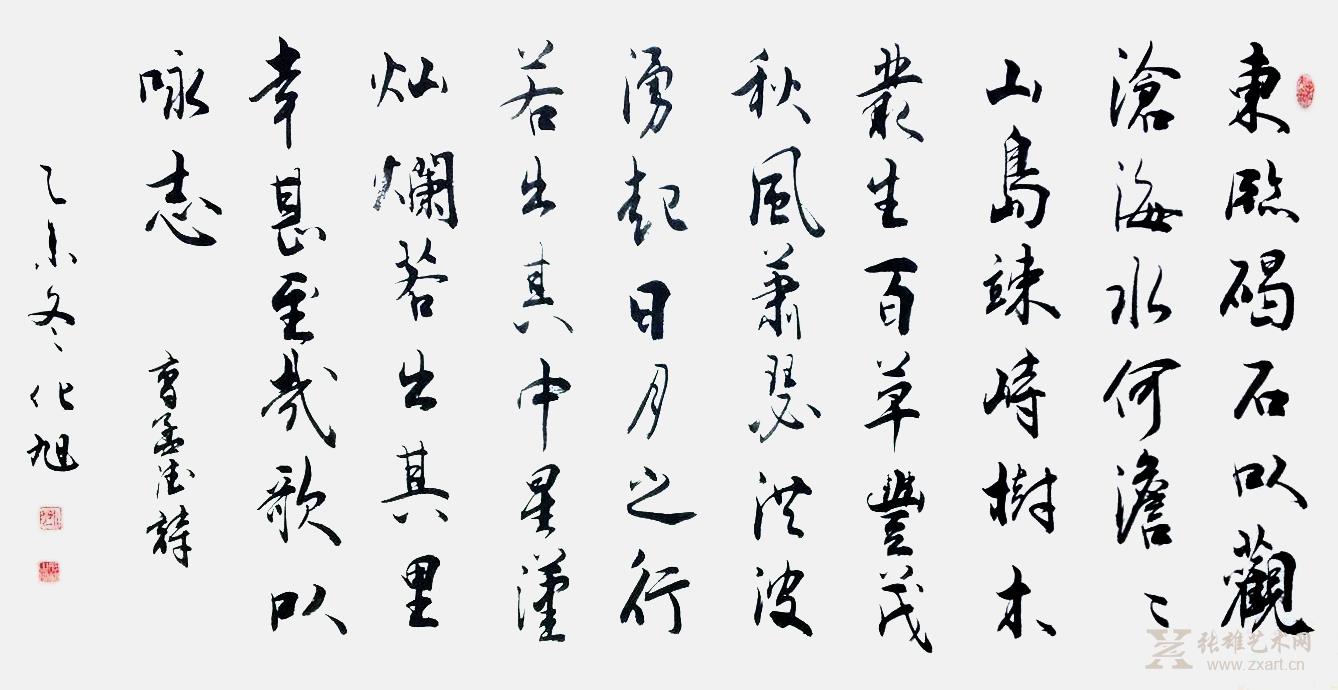 東臨碣石以觀
滄海水何澹々
山島竦峙樹木
叢生百草豐茂
秋風蕭瑟洪波
湧起日月之行
若出其中星漢
灿爛若出其里
幸甚至哉歌以
咏志 曹孟德詩
乙未冬化旭
张雄艺术网
www.zxart.cn